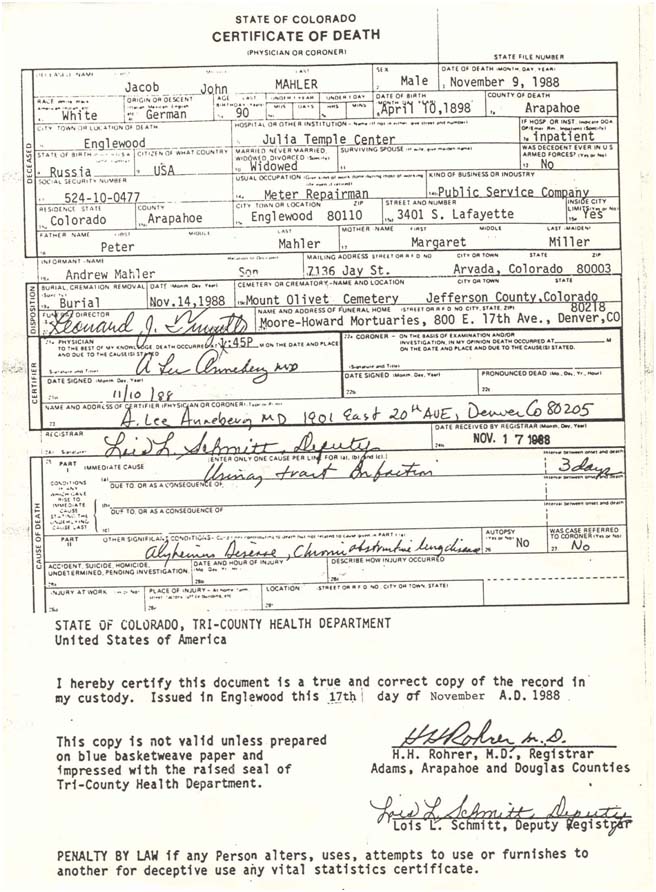 STATE OF COLORADO
CERTIFICATE OF DEATH
(PHYSICIAN OR CORONER)
STATE FILE NUMBER
DECEASED NAME FIRST MIDDLE LAST SEX DATE OF DEATH (MONTH, DAY, YEAR)
Jacob John MAHLER Male November 9, 1988
RACE ORIGIN OR DESCENT AGE UNDER 1 YEAR UNDER 1 DAY DATE OF BIRTH COUNTY OF DEATH
MOS DAYS HRS MINS
White German 90 April 10, 1898 Arapahoe
CITY TOWN OR LOCATION OF DEATH HOSPITAL OR OTHER INSTITUTION - Name (If not in either, give street and number) IF HOSP OR INST. Indicate DOA
Englewood Julia Temple Center inpatient
STATE OF BIRTH CITIZEN OF WHAT COUNTRY MARRIED NEVER MARRIED, WIDOWED DIVORCED (Specify) SURVIVING SPOUSE (If wife, give maiden name) WAS DECEDENT EVER IN U.S. ARMED FORCES? (Yes or No)
Russia USA Widowed No
SOCIAL SECURITY NUMBER USUAL OCCUPATION KIND OF BUSINESS OR INDUSTRY
524-10-0477 Meter Repairman Public Service Company
RESIDENCE STATE COUNTY CITY TOWN OR LOCATION ZIP STREET AND NUMBER INSIDE CITY LIMITS (Yes or No)
Colorado Arapahoe Englewood 80110 3401 S. Lafayette Yes
FATHER NAME FIRST MIDDLE LAST MOTHER NAME FIRST MIDDLE LAST (MAIDEN)
Peter Mahler Margaret Miller
INFORMANT-NAME MAILING ADDRESS STREET OR R F D NO CITY OR TOWN STATE ZIP
Andrew Mahler Son 7136 Jay St. Arvada, Colorado 80003
DISPOSITION
BURIAL, CREMATION REMOVAL DATE (Month Day, Year) CEMETERY OR CREMATORY-NAME AND LOCATION CITY OR TOWN STATE
Burial Nov.14,1988 Mount Olivet Cemetery Jefferson County,Colorado
FUNERAL DIRECTOR NAME AND ADDRESS OF FUNERAL HOME (STREET OR R F D NO, CITY, STATE, ZIP) 80218
Leonard J. Moore-Howard Mortuaries, 800 E. 17th Ave., Denver,CO
CERTIFIER
21a PHYSICIAN 22a CORONER - ON THE BASIS OF EXAMINATION AND/OR
TO THE BEST OF MY KNOWLEDGE DEATH OCCURRED :45P M ON THE DATE AND PLACE INVESTIGATION, IN MY OPINION DEATH OCCURRED AT M
AND DUE TO THE CAUSE(S) STATED ON THE DATE AND PLACE AND DUE TO THE CAUSE(S) STATED.
(Signature and Title) A Lee Anneberg MD (Signature and Title)
DATE SIGNED (Month, Day, Year) DATE SIGNED (Month, Day, Year) PRONOUNCED DEAD (Mo., Day, Year)
11/10/88
NAME AND ADDRESS OF CERTIFIER (PHYSICIAN OR CORONER)
A. Lee Anneberg MD 1901 East 20th AVE, Denver Co 80205
REGISTRAR DATE RECEIVED BY REGISTRAR (Month, Day, Year)
Lois L. Schmitt Deputy NOV. 17 1988
CAUSE OF DEATH
PART I IMMEDIATE CAUSE (ENTER ONLY ONE CAUSE PER LINE FOR (a), (b) and (c).) Interval between onset and death
(a) Urinary tract Infection 3 days
CONDITIONS IF ANY WHICH GAVE RISE TO IMMEDIATE CAUSE STATING THE UNDERLYING CAUSE LAST
DUE TO, OR AS A CONSEQUENCE OF Interval between onset and death
(b)
DUE TO, OR AS A CONSEQUENCE OF: Interval between onset and death
(c)
PART II OTHER SIGNIFICANT CONDITIONS AUTOPSY (Yes or No) WAS CASE REFERRED TO CORONER (Yes or No)
Alzheimers Disease, Chronic obstructive lung disease No No
ACCIDENT, SUICIDE, HOMICIDE, UNDETERMINED, PENDING INVESTIGATION DATE AND HOUR OF INJURY DESCRIBE HOW INJURY OCCURRED
INJURY AT WORK PLACE OF INJURY LOCATION (STREET OR R F D NO, CITY OR TOWN, STATE)
STATE OF COLORADO, TRI-COUNTY HEALTH DEPARTMENT
United States of America
I hereby certify this document is a true and correct copy of the record in
my custody. Issued in Englewood this 17th day of November A.D. 1988
This copy is not valid unless prepared
on blue basketweave paper and
impressed with the raised seal of
Tri-County Health Department.
HHRohrer M.D.
H.H. Rohrer, M.D., Registrar
Adams, Arapahoe and Douglas Counties
Lois L Schmitt, Deputy
Lois L. Schmitt, Deputy Registrar
PENALTY BY LAW if any Person alters, uses, attempts to use or furnishes to
another for deceptive use any vital statistics certificate.